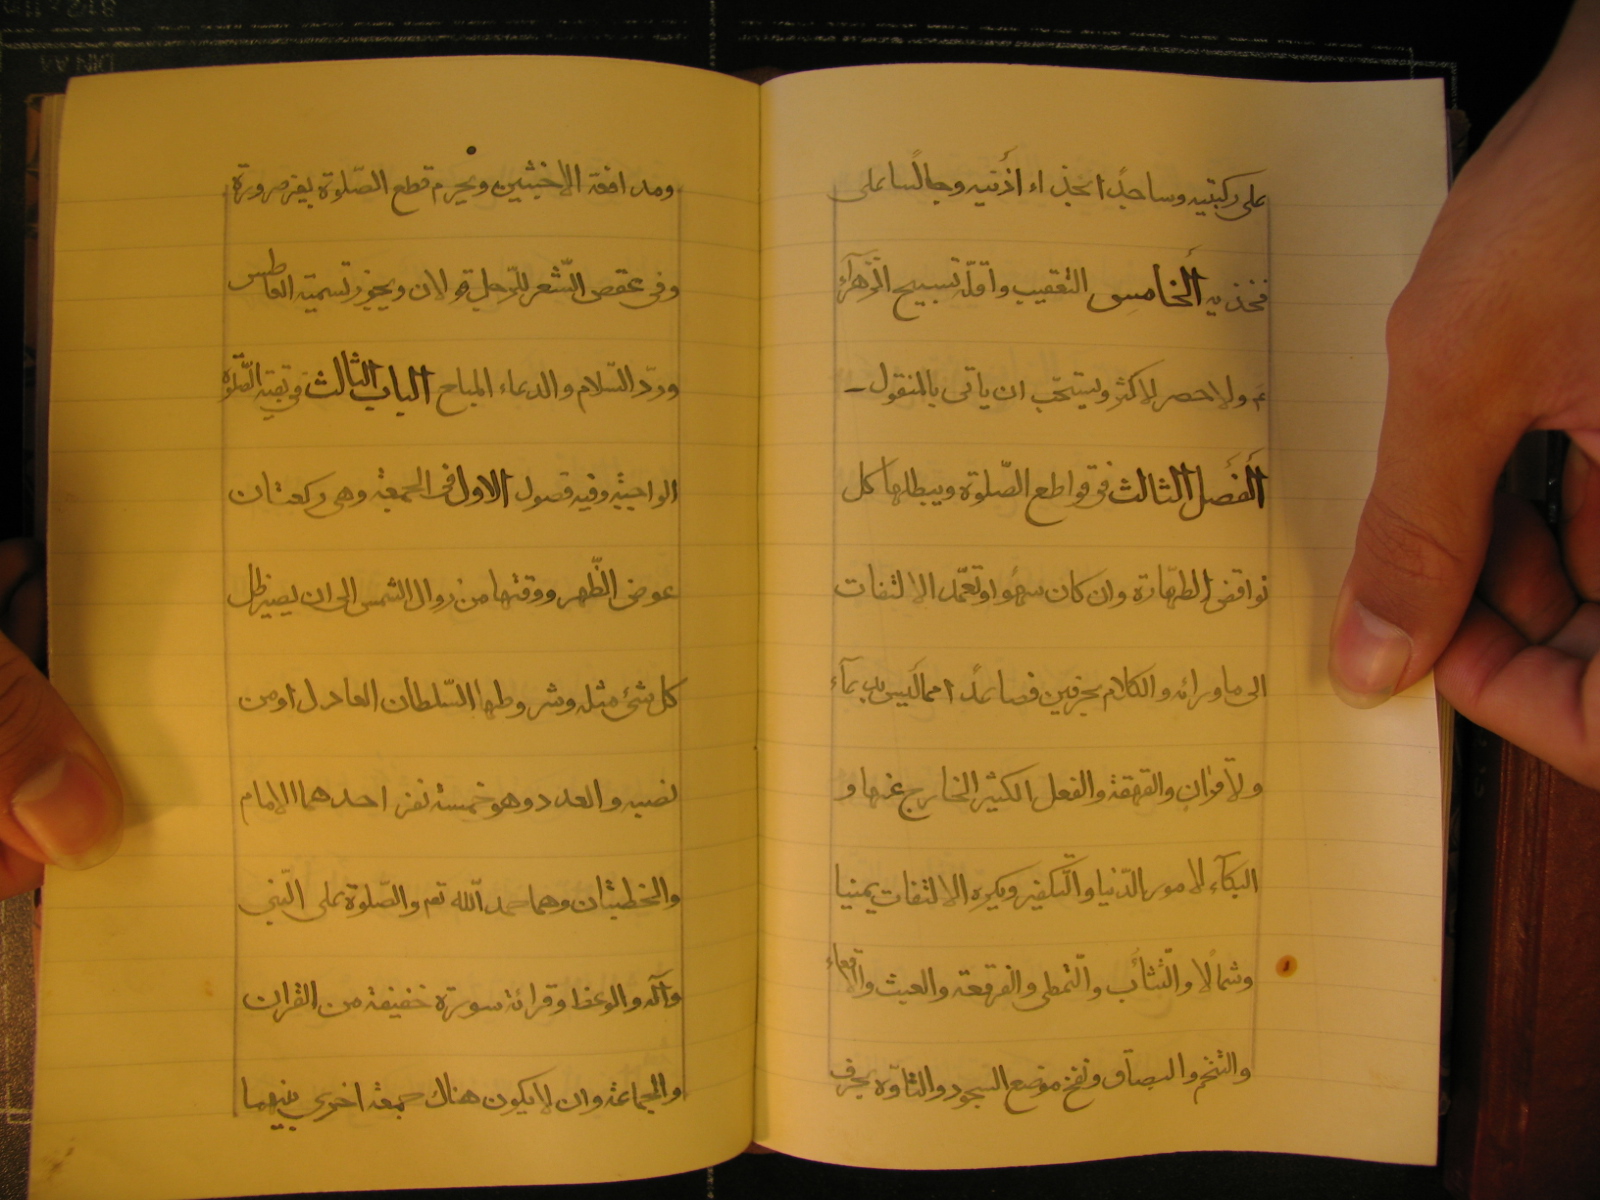 على ركبتيه وساجدًا بحذاء اذُنيه وجالسًا على
فخذيه ألخامس التعقيب واقلّه تسبيح الزّهرآء
ع ولا حصر لاكثره ويستحّب ان ياتى بالمنقول
ألفَصل الثالث فى قواطع الصّلوة ويبطلها كل
نواقض الطهّارة وان كان سهوا وتعمّد الالتفات
الى ما ورائه والكلام بحرفين فصاعدًا مما ليس بدعآء
ولا قران والقهقهة والفعل الكثير الخارج عنها و
البكآء لامور الدّنيا والتّكفير ويكره الالتفات يمينا
وشمالًا والتّثأب والتّمطى والفرقعة والعبث والاقعاء
والتنخم والبصاق ونفخ موضع السجود والتاوّه بحرف
ومدافعة الاخبثين ويحرم قطع الصّلوة بغير ضرورة
وفى عقص الشّعر للرّجل قولان ويجوز تسمية العاطس
وردّ السّلام والدعاء المباح الباب الثالث فى بقية الصّلوة
الواجبة وفيه فصول الاول فى الجمعة وهى ركعتان
عوض الظّهر ووقتها من زوال الشمس الى ان يصير ظل
كل شئ مثله وشروطها السّلطان العادل او من
نصبه والعدد وهو خمسة نفر احدهما الامام
والخطبتان وهما حمد اللّه تعم والصّلوة على النّبى
وآله والوعظ وقرائة سورة خفيفة من القران
والجماعة وان لا يكون هناك جمعة اخرى بينهما